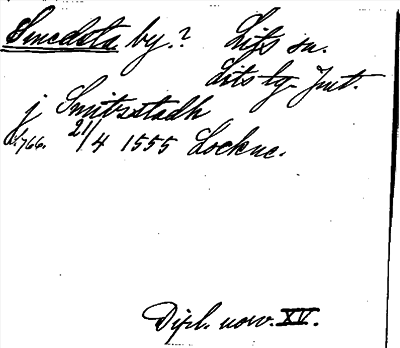 Smedsta by.? Lits sn.
Lits tg. Jmt.
j Smitzstadh
d. 766. 21/4 1555 Lockne.
Dipl. norv. XV.